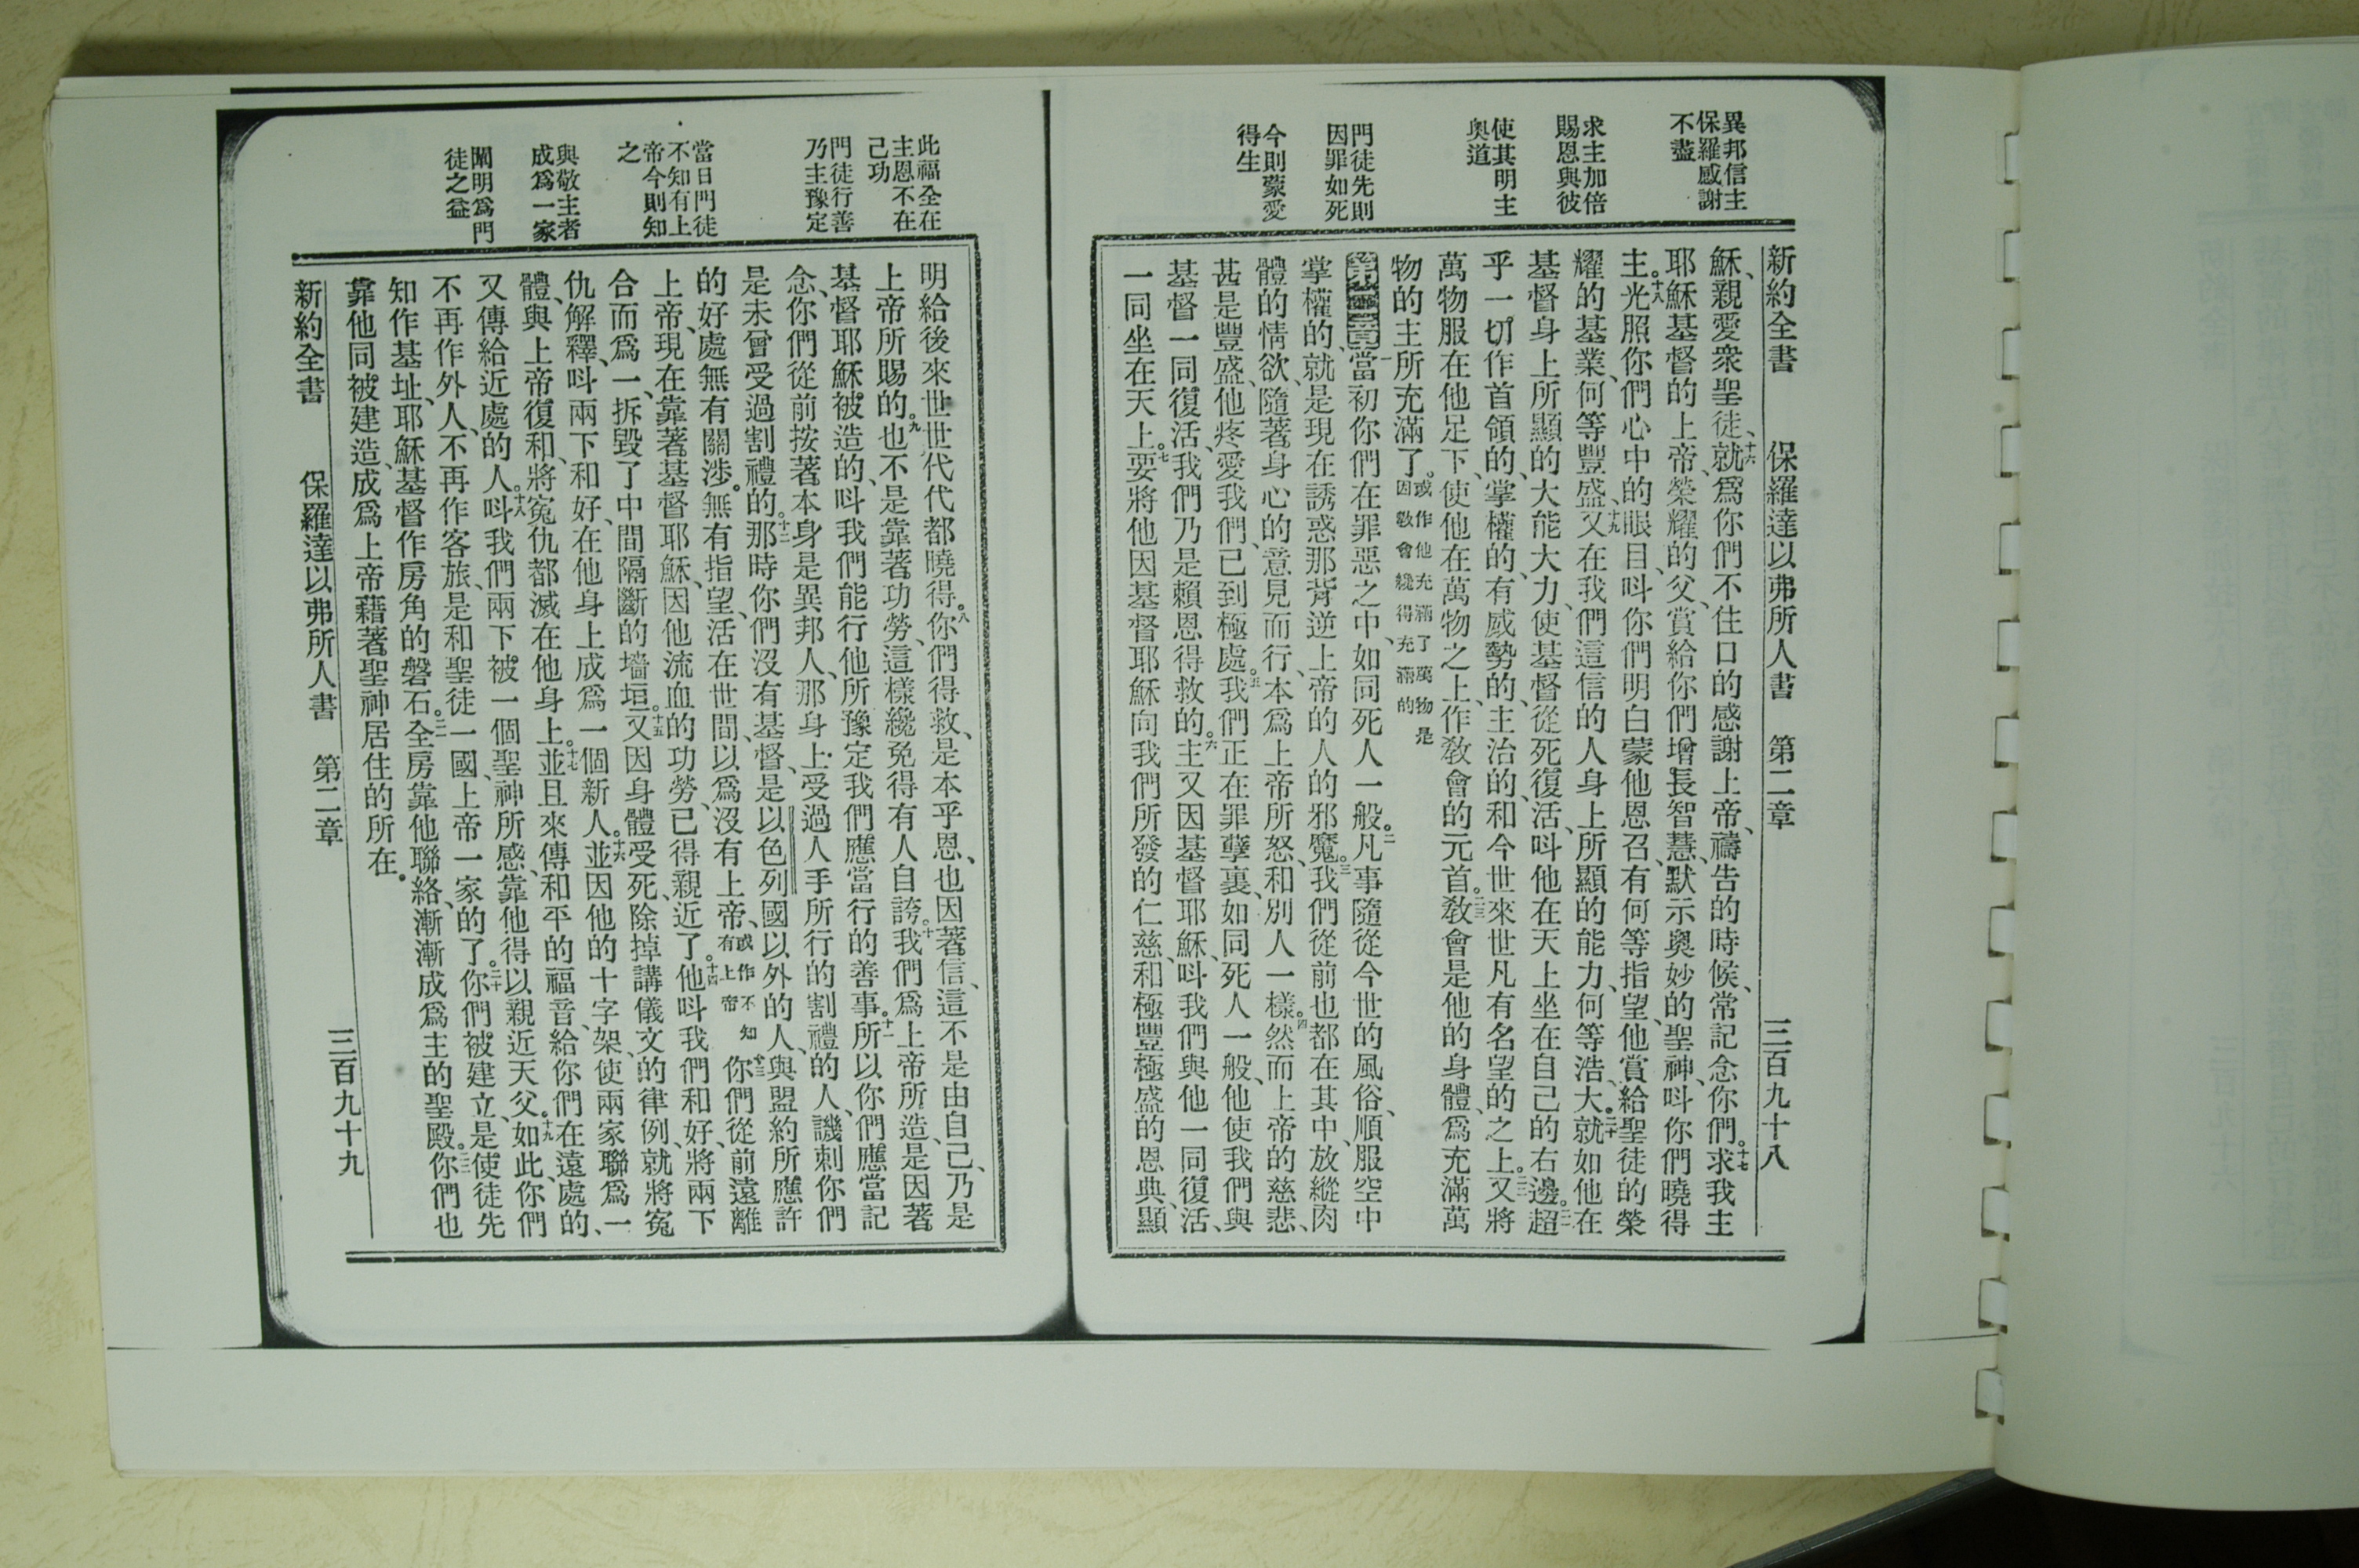 異邦信主
保羅感謝
不盡
求主加倍
賜恩與彼
使其明主
奧道
門徒先則
因罪如死
今則蒙愛
得生
新約全書 保羅達以弗所人書 第二章 三百九十八
穌、親愛衆聖徒、十六就爲你們不住口的感謝上帝、禱告的時候、常記念你們。十七求我主
耶穌基督的上帝、榮耀的父、賞給你們增長智慧、默示奧妙的聖神、呌你們曉得
主。十八光照你們心中的眼目、呌你們明白蒙他恩召、有何等指望、他賞給聖徒的榮
耀的基業、何等豐盛、十九又在我們這信的人身上所顯的能力、何等浩大、二十就如他在
基督身上所顯的大能大力、使基督從死復活、呌他在天上坐在自己的右邊。二一超
乎一切作首領的、掌權的、有威勢的、主治的、和今世來世凡有名望的之上。二二又將
萬物服在他足下、使他在萬物之上、作敎會的元首。二三敎會是他的身體、爲充滿萬
物的主所充滿了。或作他充滿了萬物是因敎會纔得充滿的
第二章一當初你們在罪惡之中、如同死人一般。二凡事隨從今世的風俗、順服空中
掌權的、就是現在誘惑那背逆上帝的人的邪魔。三我們從前也都在其中、放縱肉
體的情欲、隨著身心的意見而行、本爲上帝所怒、和別人一樣。四然而上帝的慈悲、
甚是豐盛、他疼愛我們、已到極處。五我們正在罪孽裏、如同死人一般、他使我們與
基督一同復活、我們乃是賴恩得救的。六主又因基督耶穌、呌我們與他一同復活、
一同坐在天上。七要將他因基督耶穌向我們所發的仁慈、和極豐極盛的恩典、顯
此福全在
主恩不在
己功
門徒行善
乃主豫定
當日門徒
不知有上
帝今則知
之
與敬主者
成爲一家
闡明爲門
徒之益
明給後來世世代代都曉得。八你們得救、是本乎恩、也因著信、這不是由自己、乃是
上帝所賜的。九也不是靠著功勞、這樣纔免得有人自誇。十我們爲上帝所造、是因著
基督耶穌被造的、呌我們能行他所豫定我們應當行的善事。十一所以你們應當記
念、你們從前按著本身是異邦人、那身上受過人手所行的割禮的人、譏刺你們
是未曾受過割禮的。十二那時你們沒有基督、是以色列國以外的人、與盟約所應許
的好處無有關涉。無有指望、活在世間、以爲沒有上帝、或作不知有上帝 十三你們從前遠離
上帝、現在靠著基督耶穌、因他流血的功勞、已得親近了。十四他呌我們和好、將兩下
合而爲一、拆毀了中間隔斷的墻垣。十五又因身體受死、除掉講儀文的律例、就將寃
仇解釋、呌兩下和好、在他身上成爲一個新人。十六並因他的十字架、使兩家聯爲一
體、與上帝復和、將寃仇都滅在他身上。十七並且來傳和平的福音、給你們在遠處的、
又傳給近處的人。十八呌我們兩下被一個聖神所感、靠他得以親近天父。十九如此、你們
不再作外人、不再作客旅、是和聖徒一國、上帝一家的了。二十你們被建立、是使徒先
知作基址、耶穌基督作房角的磐石。二一全房靠他聯絡、漸漸成爲主的聖殿。二二你們也
靠他同被建造、成爲上帝藉著聖神居住的所在。
新約全書 保羅達以弗所人書 第二章 三百九十九